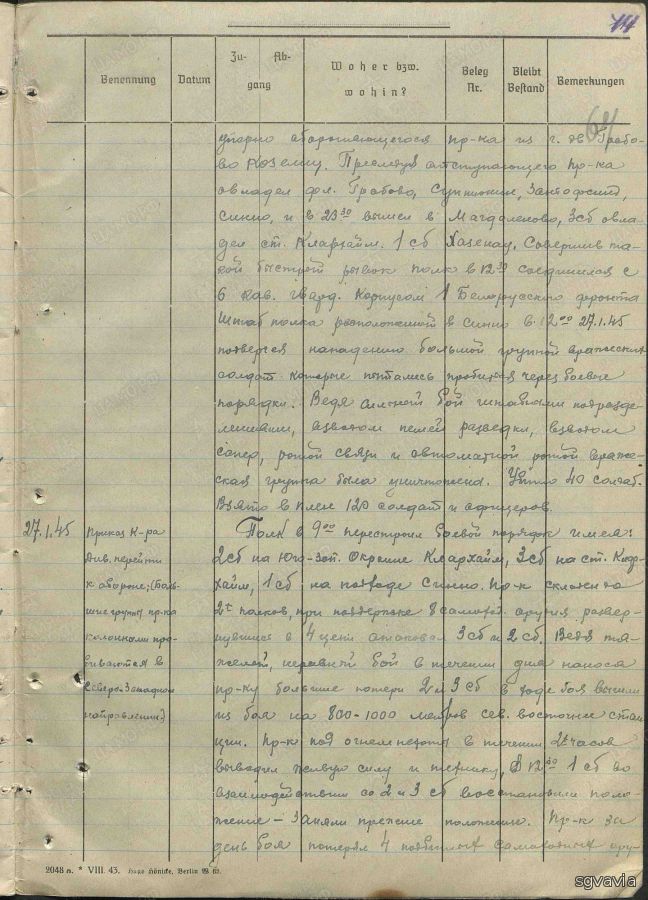 114
64
Benennung Datum Zu- Ab- gang Woher bzw. wohin? Beleg Nr. Bleibt Bestand Bemerkungen
упорно обороняющегося пр-ка из г. дв Грабо-
во Преследуя отступающего пр-ка
овладел фол. Грабово,
Синно, и в 23 30 вышел в Магдаленово, 3сб овла-
дел ст. Клархайм. 1 сб Хазенау, Совершив та-
кой быстрый рывок полк в 12 30 соединился с
6 кав. гвард. Корпусом 1 Белорусского фронта
Штаб полка расположеной в Синно в 12 00 27.1.45
подвергся нападению большой группой вражеских
солдат которые пытались пробится через боевые
порядки. Ведя сильный бой подразде-
лениями, взводом пешей разведки, взводом
сапер, ротой связи и автоматной ротой враже-
ская группа была уничтожена. Убито 40 солдат.
Взято в плен 120 солдат и офицеров.
27.1.45
Приказ К-ра
див. перейти
к обороне; (Боль-
шие группы пр-ка
колоннами про-
биваются в
Северо-Западном
направлении)
Полк в 9 00 перестроил боевой порядок имея:
2сб на Юго-Зап. Окраине Клархайм, 3сб на ст. Клар-
хайм, 1 сб на подходе Синно. Пр-к силою до
2х полков, при поддержке 8 самоход. орудия развер-
нувшись в 4 цепи атаковал 3сб и 2сб. Ведя тя-
желый, неравный бой в течении дня нанося
пр-ку большие потери 2 и 3 сб в ходе боя вышли
из боя на 800-1000 метров сев. восточнее стан-
ции. Пр-к под огнем пехоты в течении 2х часов
выводил живую силу и технику, В 12 30 1 сб во
взаимодействии со 2 и 3 сб восстановили поло-
жение - Заняли прежнее положение. Пр-к за
день боя потерял 4 подбитых самоходных ору-
2048 a. * VIII. 43. Hugo Hönicke, Berlin
sgvavia